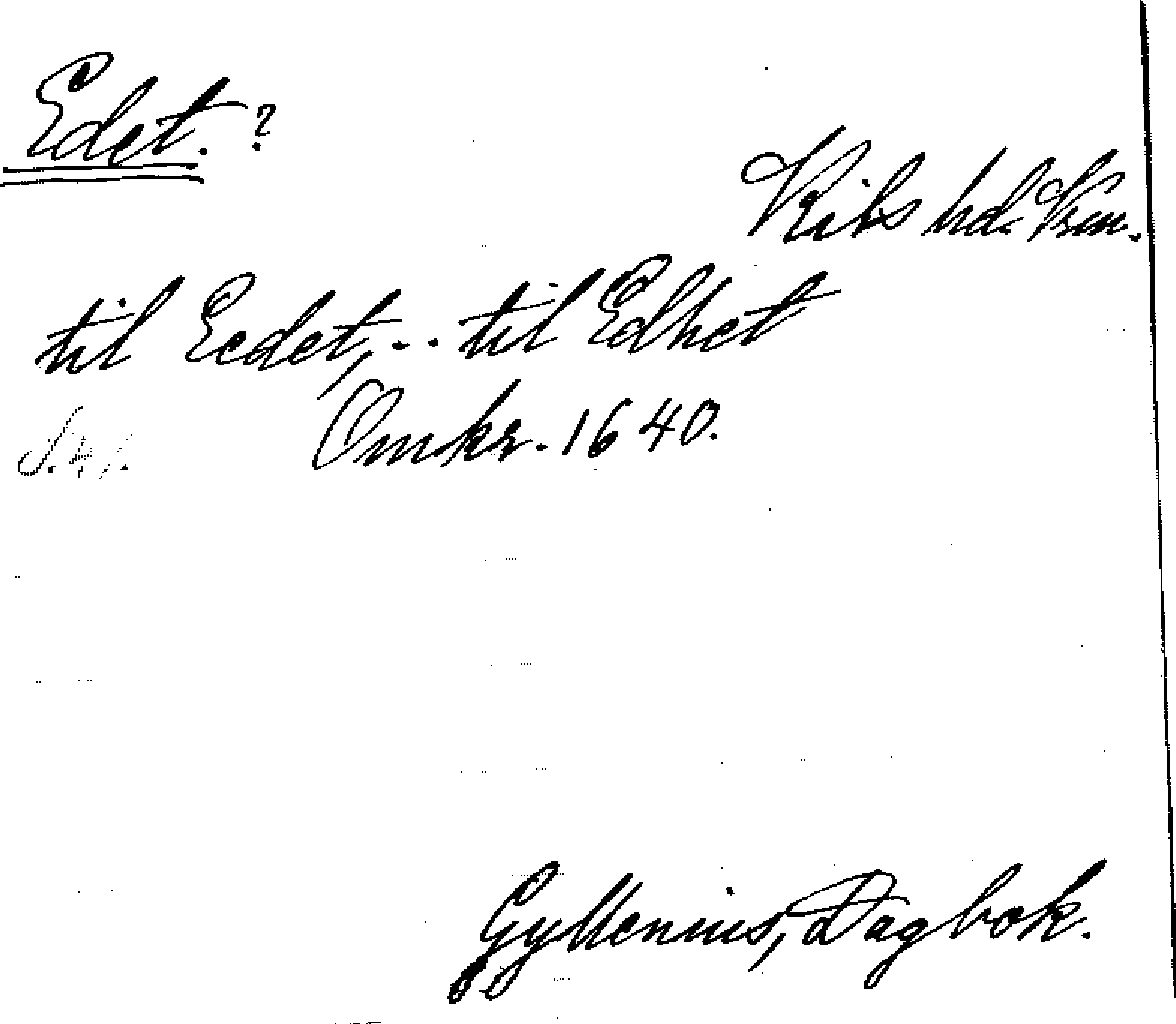 Edet. ?
Kils hd. Vrm.
til Eedet, .. til Edhet
S. 41. Omkr. 1640.
Gyllenius, Dagbok.